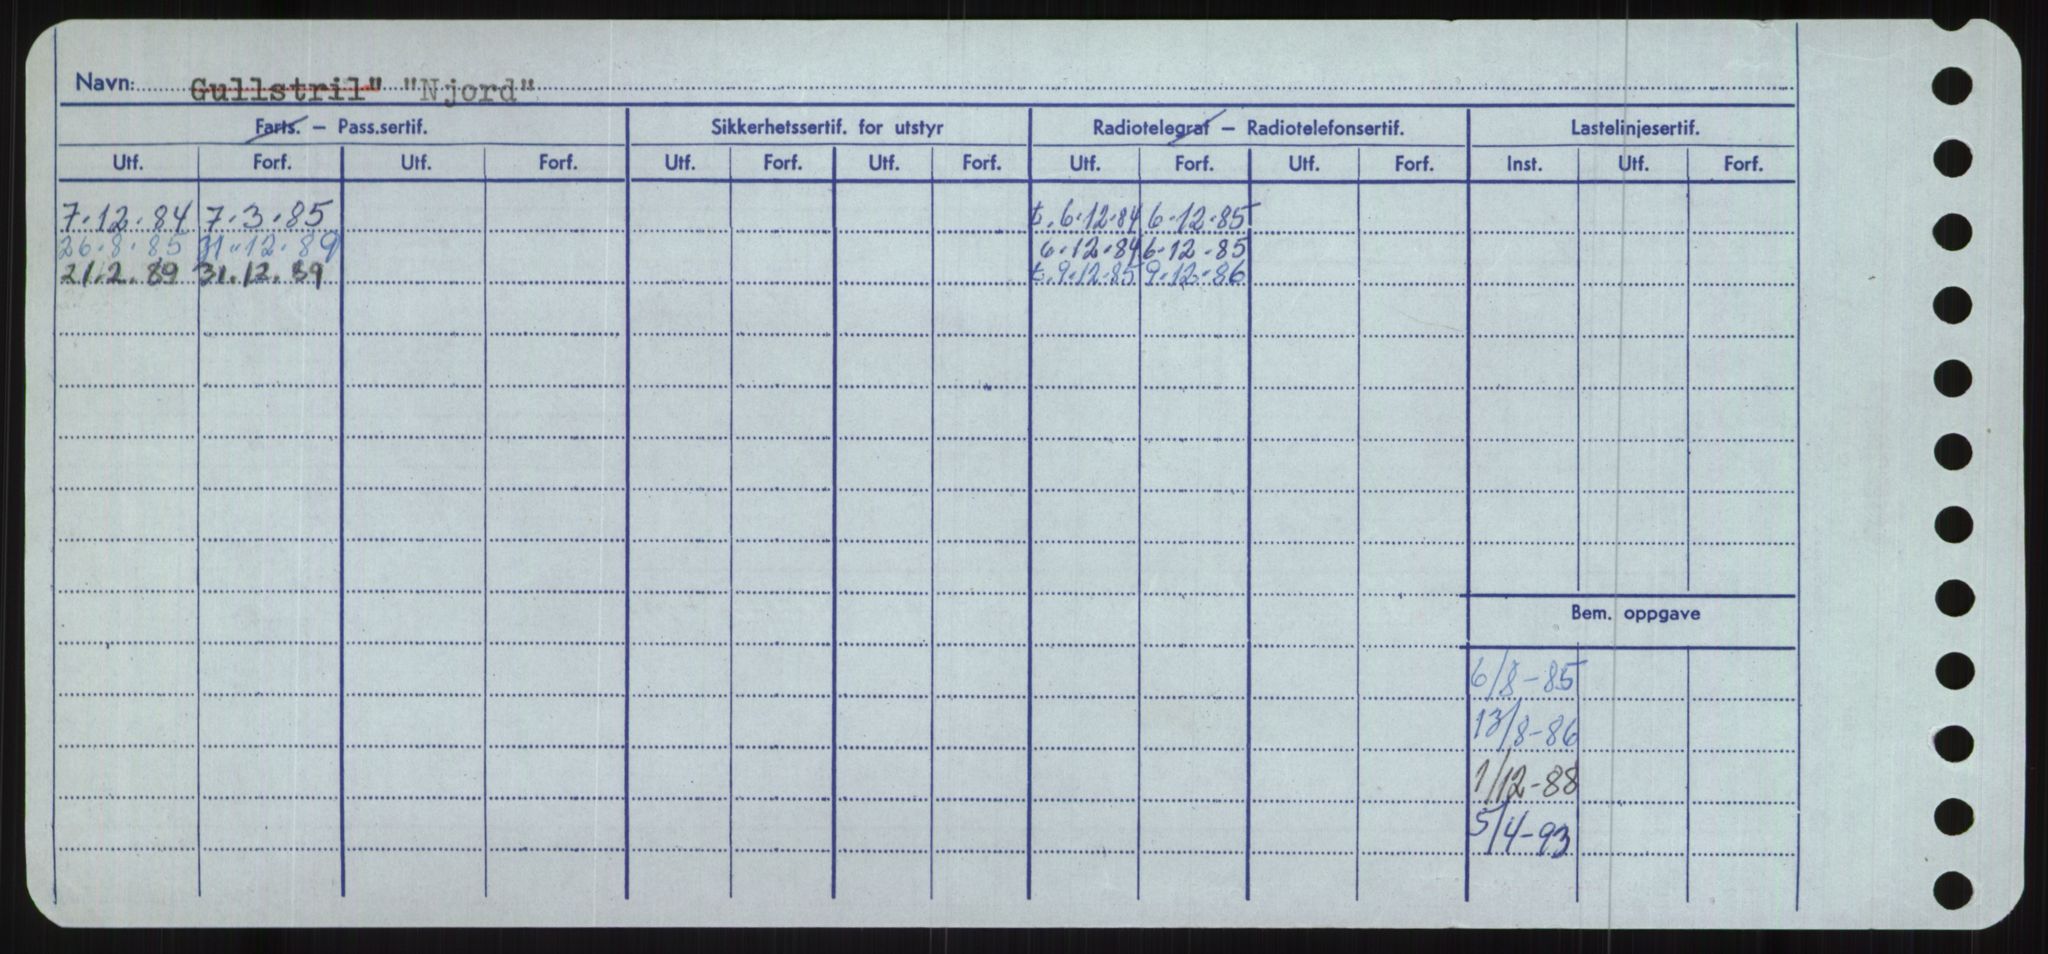 Navn: Gullstril" "Njord"
Farts. – Pass.sertif. Sikkerhetssertif. for utstyr Radiotelegraf – Radiotelefonsertif. Lastelinjesertif.
Utf. Forf. Utf. Forf. Utf. Forf. Utf. Forf. Utf. Forf. Utf. Forf. Inst. Utf. Forf.
7.12.84 7.3.85 t. 6.12.84 6.12.85
26.8.85 31.12.89 6.12.84 6.12.85
21.2.89 31.12.89 t. 9.12.85 9.12.86
Bem. oppgave
6/8-85
13/8-86
1/12-88
5/4-93